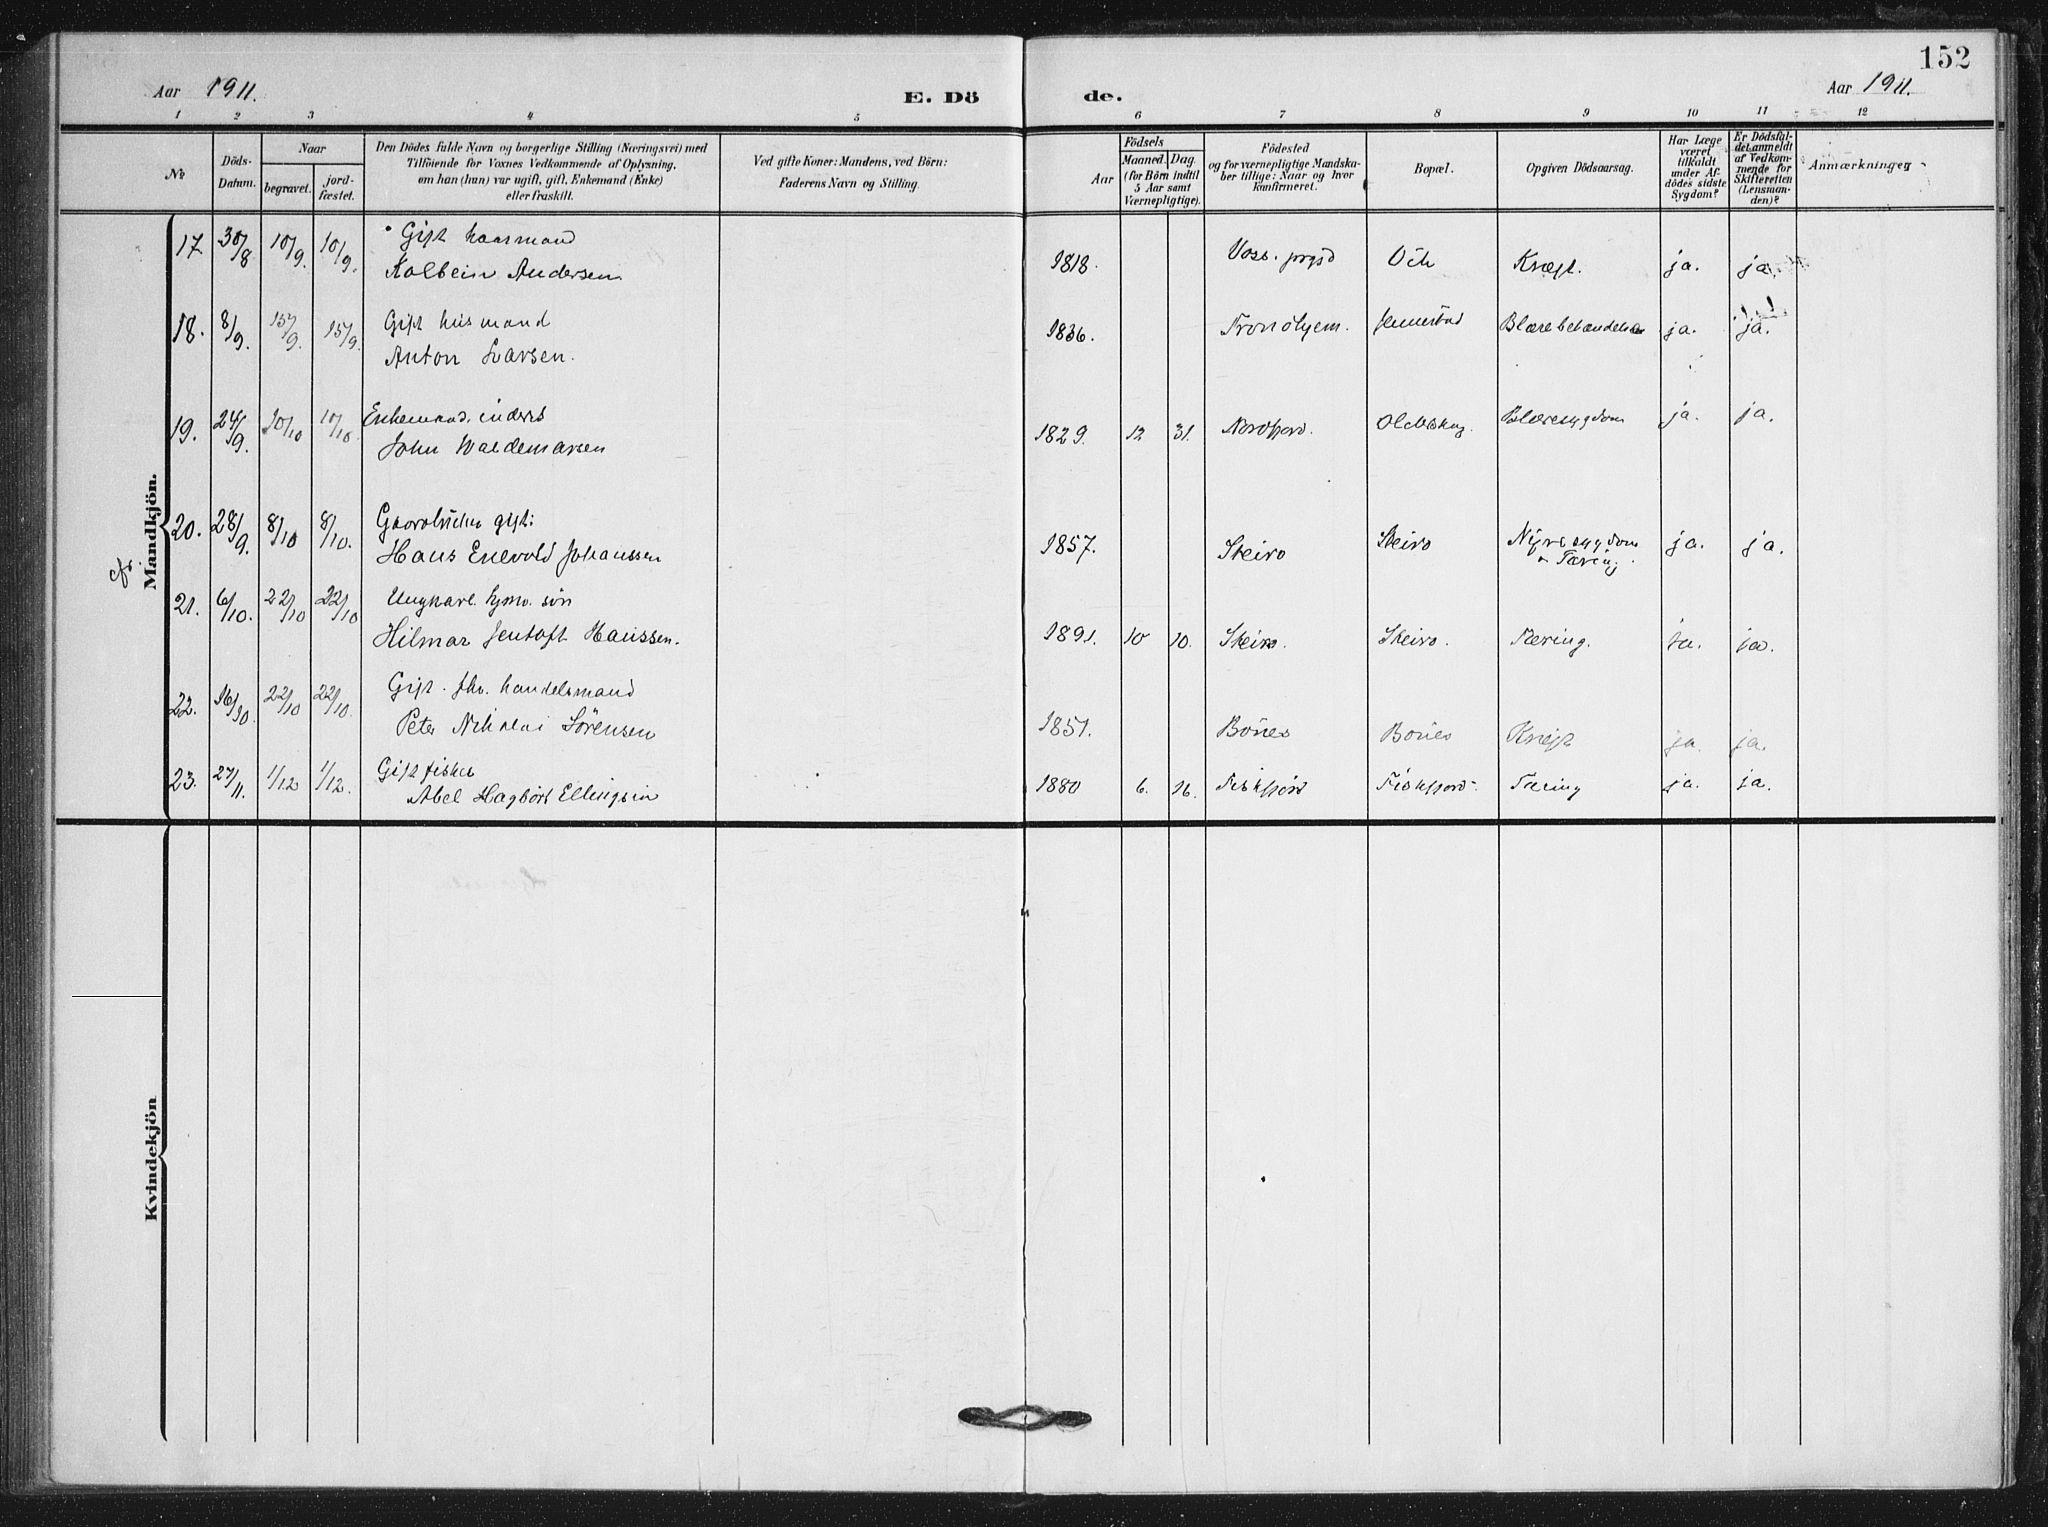 152
Aar 1911.
E. Dö
de.
Aar 1911.
1 2 3 4 5 6 7 8 9 10 11 12
No
Döds-
Datum.
Naar
begravet.
jord-
fæstet.
Den Dödes fulde Navn og borgerlige Stilling (Næringsvei) med
Tilföiende for Voxnes Vedkommende af Oplysning,
om han (hun) var ugift, gift, Enkemand (Enke)
eller fraskilt.
Ved gifte Koner: Mandens, ved Börn:
Faderens Navn og Stilling.
Aar
Födsels
Maaned. Dag.
(for Börn indtil
5 Aar samt
Værnepligtige).
Födested
og for værnepligtige Mandska-
ber tillige: Naar og hvor
konfirmeret.
Bopæl.
Opgiven Dödsaarsag.
Har Læge
været
tilkaldt
under Af-
dödes sidste
Sygdom?
Er Dödsfal-
det anmeldt
af Vedkom-
mende for
Skifteretten
(Lensman-
den)?
Anmærkninger
Mandkjön.
17. 30/8 10/9. 10/9. Gift
Kolbein Andersen 1818. Voss. prgjd Kræft. ja. ja.
18. 8/9. 15/9 15/9. Gift husmand
Anton Larsen. 1836. Trondhjem. Jennestad ja. ja.
19. 24/9. 10/10 10/10 Enkemand. inderst
John Waldemarsen 1829. 12 31. Nordfjord. Blæresygdom ja. ja.
20. 28/9. 8/10 8/10. Gaardbruker gift:
Hans Enevold Johanssen 1857. Skeiro Skeiro Nyresygdom
Tæring. ja. ja.
21. 6/10. 22/10 22/10 Ungkarl. søn
Hilmar Jentoft Hanssen. 1891. 10 10. Skeiro. Skeiro. Tæring. ja. ja.
22. 16/10. 22/10 22/10. Gift. fhv. handelsmand
Peter Nikolai Sörensen 1851. Bönes Bönes Kræft ja. ja.
23. 27/11. 1/12 1/12. Gift fisker
Abel Hagbört Ellingsen 1880 6. 16. Fiskfjord Fiskfjord Tæring ja. ja.
Kvindekjön